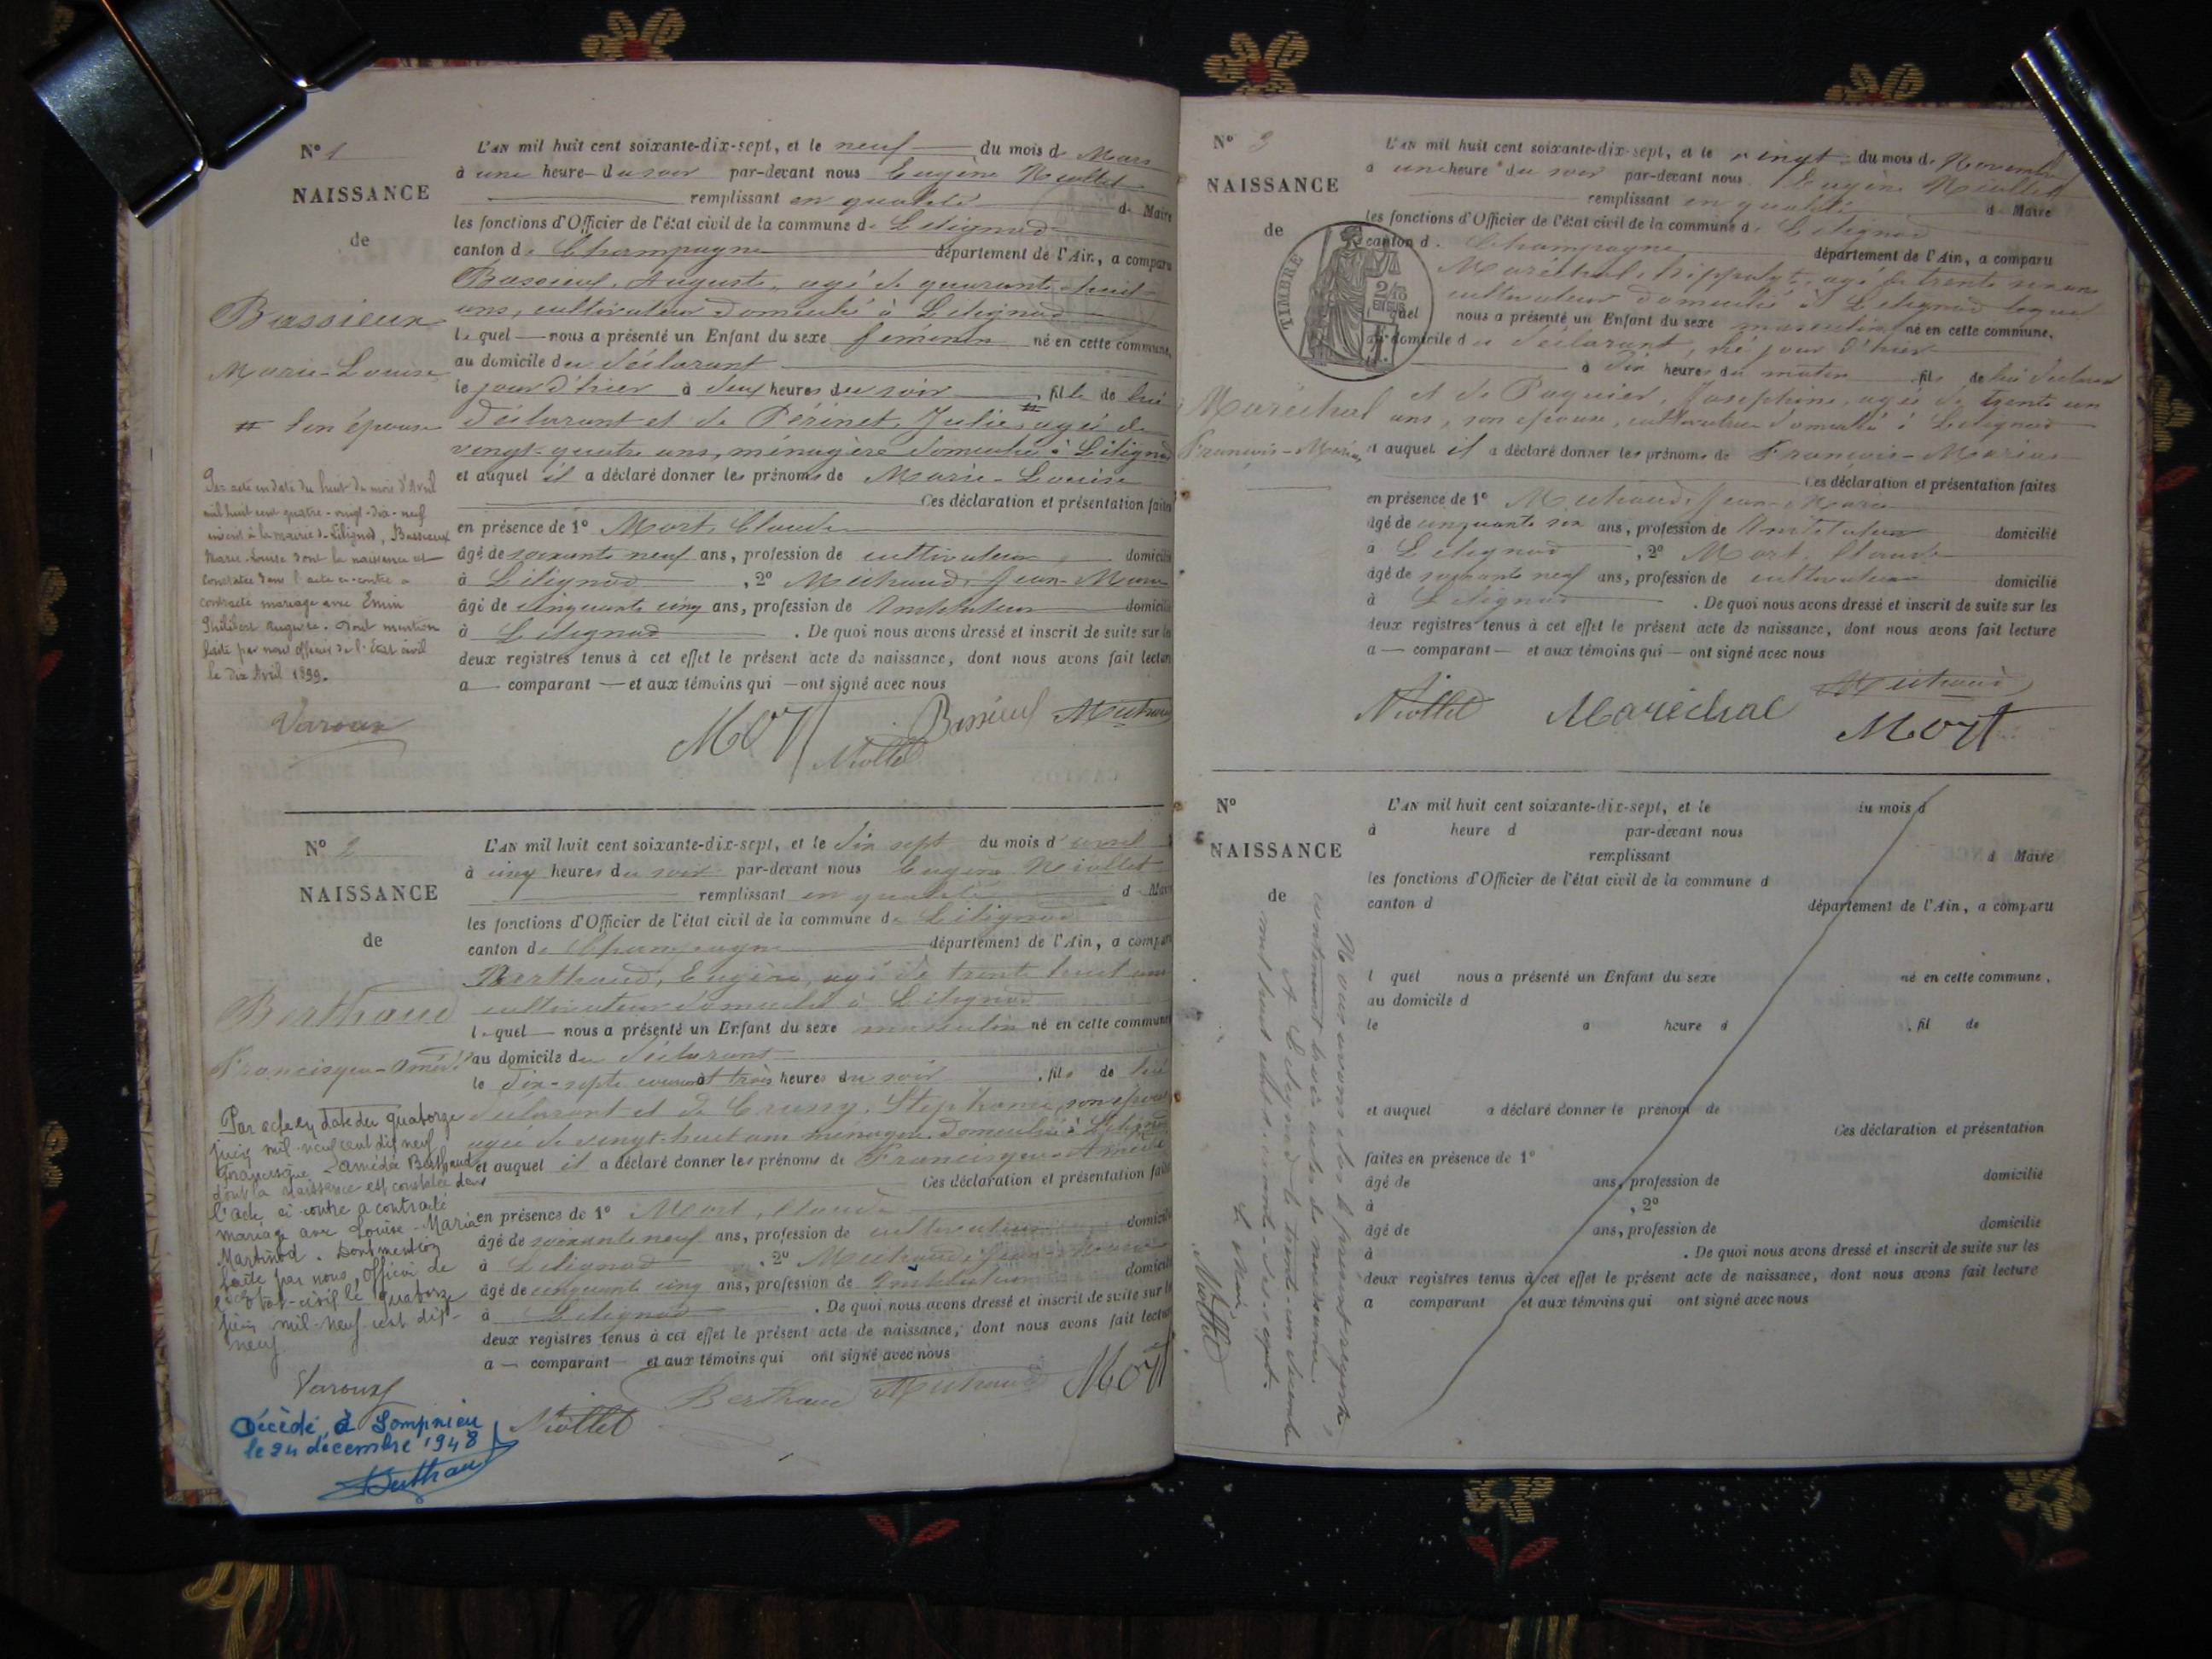 N° 1
NAISSANCE
de
Bassieux
Marie-Louise
# son épouse
Par acte en date du huit du mois d'Avril
mil huit cent quatre-vingt-dix-neuf
inscrit à la mairie de Lilignod, Bassieux
Marie-Louise dont la naissance est
constatée dans l'acte ci-contre a
contracté mariage avec Emin
Philibert Auguste. Dont mention
faite par nous officier de l'Etat civil
le dix Avril 1899.
Varoux
L'AN mil huit cent soixante-dix-sept, et le neuf du mois d. Mars
à une heure du soir par-devant nous Eugène Niollet
remplissant en qualité d. Maire
les fonctions d'Officier de l'état civil de la commune d. Lilignod
canton d. Champagne département de l'Ain, a comparu
Bassieux, Auguste, agé de quarante-huit
ans, cultivateur domicilié à Lilignod
lequel nous a présenté un Enfant du sexe féminin né en cette commune,
au domicile du déclarant
le jour d'hier à deux heures du soir, fille de lui
déclarant et de Périnet, Julie, # agée de
vingt-quatre ans, ménagère domiciliée à Lilignod
et auquel il a déclaré donner les prénoms de Marie-Louise
Ces déclaration et présentation faites
en présence de 1° Mort, Claude
âgé de soixante neuf ans, profession de cultivateur domicilié
à Lilignod, 2° Michaud, Jean-Marie
âgé de cinquante cinq ans, profession de Instituteur domicilié
à Lilignod. De quoi nous avons dressé et inscrit de suite sur les
deux registres tenus à cet effet le présent acte de naissance, dont nous avons fait lecture
a comparant et aux témoins qui ont signé avec nous
Mort Bassieux Michaud
Niollet
N° 2
NAISSANCE
de
Berthaud
Francisque-Amédé
Par acte en date du quatorze
juin mil-neuf cent dix neuf
Francisque Amédée Berthaud
dont la naissance est constatée dans
l'acte ci-contre a contracté
mariage avec Louise-Maria
Martinod. Dont mention
faite par nous, Officier de
l'Etat-civil le quatorze
juin mil-neuf cent dix-
neuf
Varoux
Décédé, à Sompnieu
le 24 décembre 1948
Berthaud
L'AN mil huit cent soixante-dix-sept, et le dix sept du mois d'avril
à cinq heures du soir par-devant nous Eugène Niollet
remplissant en qualité d. Maire
les fonctions d'Officier de l'état civil de la commune d. Lilignod
canton d. Champagne département de l'Ain, a comparu
Berthaud, Eugène, agé de trente huit ans
cultivateur domicilié à Lilignod
lequel nous a présenté un Enfant du sexe masculin né en cette commune
au domicile du déclarant
le dix-septe courant à trois heures du soir, fils de lui
déclarant et de Crussy, Stéphanie, son épouse
agée de vingt-huit ans ménagère domiciliée à Lilignod
et auquel il a déclaré donner les prénoms de Francisque-Amédé
Ces déclaration et présentation faites
en présence de 1° Mort, Claude
âgé de soixante neuf ans, profession de cultivateur domicilié
à Lilignod, 2° Michaud, Jean-Marie
âgé de cinquante cinq ans, profession de Instituteur domicilié
à Lilignod. De quoi nous avons dressé et inscrit de suite sur les
deux registres tenus à cet effet le présent acte de naissance, dont nous avons fait lecture
a comparant et aux témoins qui ont signé avec nous
Niollet Berthaud Michaud Mort
N° 3
NAISSANCE
de
TIMBRE
Maréchal
François-Marius
L'AN mil huit cent soixante-dix-sept, et le vingt du mois d. Novembre
à une heure du soir par-devant nous Eugène Niollet
remplissant en qualité d. Maire
les fonctions d'Officier de l'état civil de la commune d. Lilignod
canton d. Champagne département de l'Ain, a comparu
Maréchal, hippolyte, agé de trente six ans
cultivateur domicilié à Lilignod lequel
l quel nous a présenté un Enfant du sexe masculin né en cette commune,
au domicile du déclarant, le jour d'hier
à dix heures du matin fils de lui déclarant
et de Paquier, Josephine, agée de trente un
ans, son épouse, cultivatrice domiciliée à Lilignod
et auquel il a déclaré donner les prénoms de François-Marius
Ces déclaration et présentation faites
en présence de 1° Michaud, Jean-Marie
âgé de cinquante six ans, profession de Instituteur domicilié
à Lilignod, 2° Mort, Claude
âgé de soixante neuf ans, profession de cultivateur domicilié
à Lilignod. De quoi nous avons dressé et inscrit de suite sur les
deux registres tenus à cet effet le présent acte de naissance, dont nous avons fait lecture
a comparant et aux témoins qui ont signé avec nous
Niollet Maréchal Michaud
Mort
N°
NAISSANCE
de
L'AN mil huit cent soixante-dix-sept, et le du mois d
à heure d par-devant nous
remplissant d Maire
les fonctions d'Officier de l'état civil de la commune d
canton d département de l'Ain, a comparu
l quel nous a présenté un Enfant du sexe né en cette commune,
au domicile d
le à heure d, fil de
et auquel a déclaré donner le prénom de
Ces déclaration et présentation
faites en présence de 1°
âgé de ans, profession de domicilié
à, 2°
âgé de ans, profession de domicilié
à. De quoi nous avons dressé et inscrit de suite sur les
deux registres tenus à cet effet le présent acte de naissance, dont nous avons fait lecture
a comparant et aux témoins qui ont signé avec nous
Nous avons clos le présent registre,
contenant trois actes de naissance
A Lilignod le trente un décembre
mil huit cent soixante-dix-sept.
Le Maire
Niollet